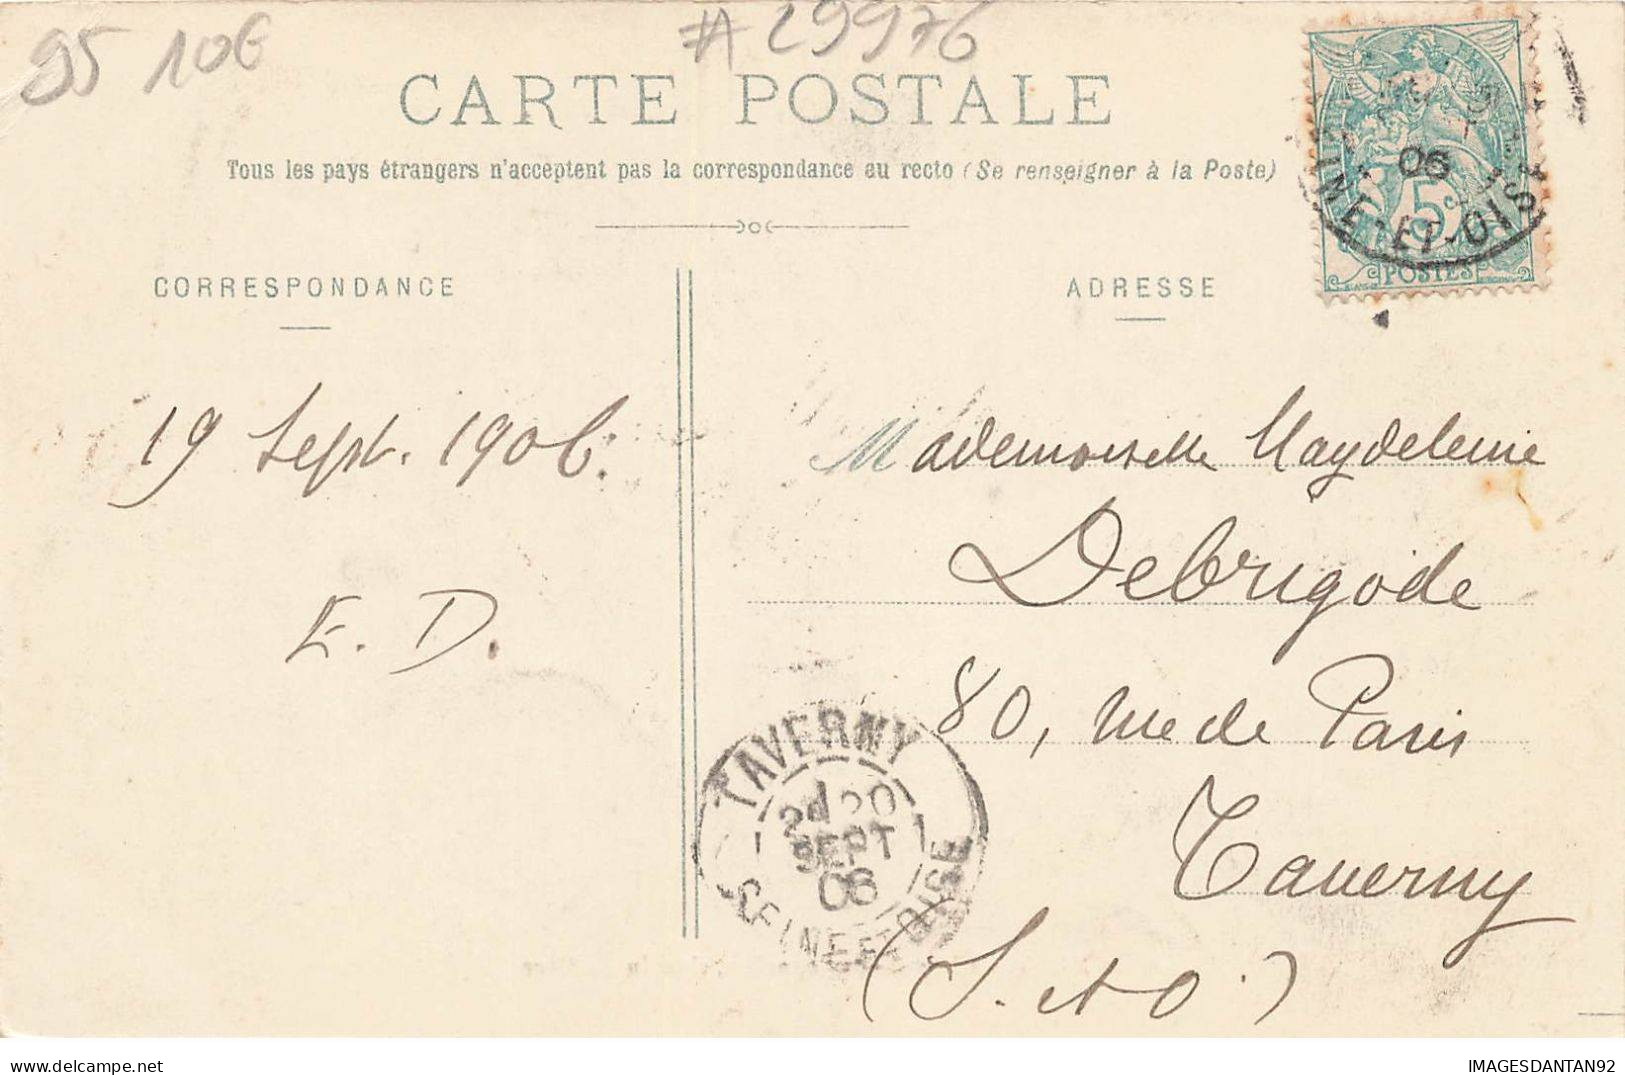 95 10€ #29976
CARTE POSTALE
Tous les pays étrangers n'acceptent pas la correspondance au recto (Se renseigner à la Poste)
CORRESPONDANCE
ADRESSE
06
5
POSTES
19 Sept. 1906.
E. D.
Mademoiselle Magdeleine
Debrigode
80, rue de Paris
Taverny
(S. et O.)
TAVERNY
20
SEPT
06
SEINE ET OISE
IMAGESDANTAN92